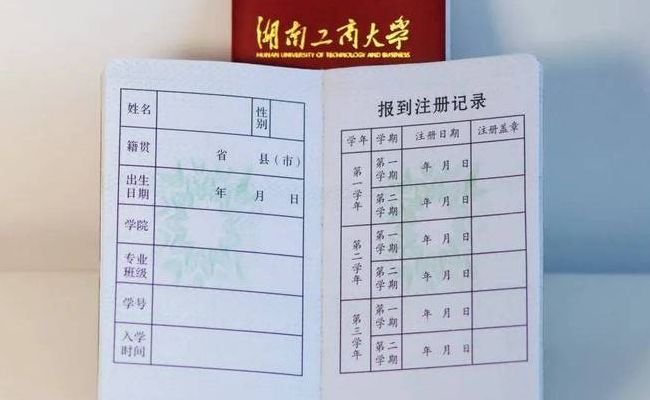 湖南工商大学
HUNAN UNIVERSITY OF TECHNOLOGY AND BUSINESS
姓名 性别
籍贯 省 县(市)
出生日期 年 月 日
学院
专业班级
学号
入学时间
报到注册记录
学年 学期 注册日期 注册盖章
第一学年 第一学期 年 月 日
第二学期 年 月 日
第二学年 第一学期 年 月 日
第二学期 年 月 日
第三学年 第一学期 年 月 日
第二学期 年 月 日